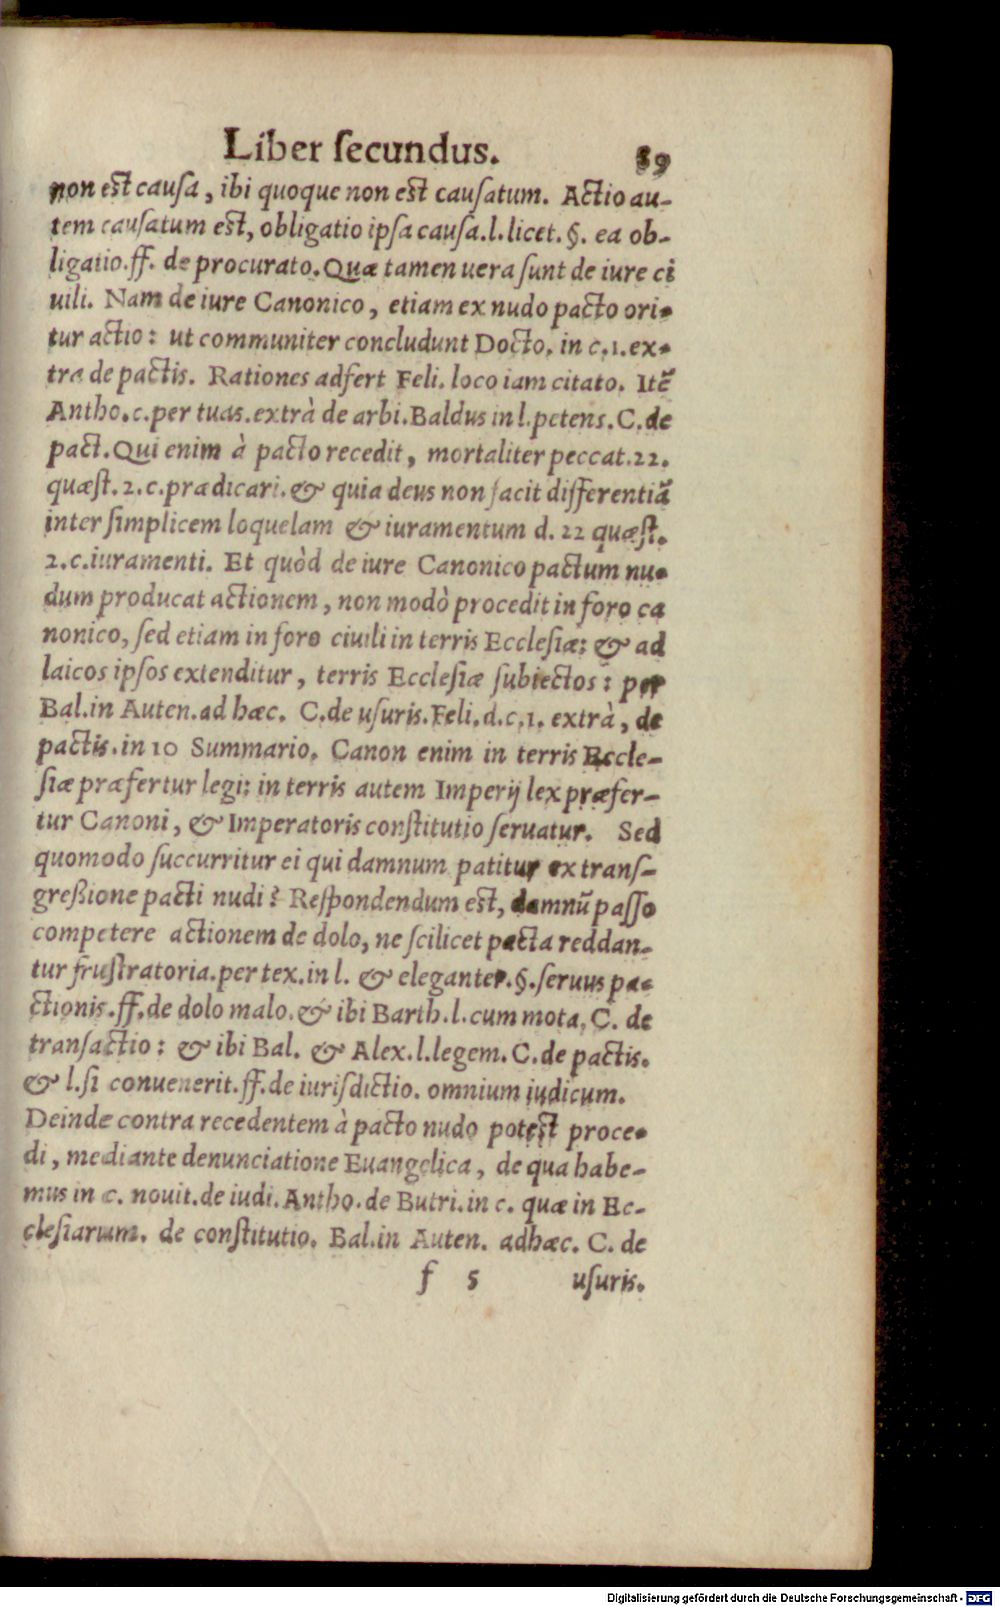 Liber ſecundus. 89
non est cauſa, ibi quoque non est cauſatum. Actio au-
tem cauſatum est, obligatio ipſa cauſa.l.licet.§. ea ob-
ligatio.ff. de procurato. Quæ tamen uera ſunt de iure ci
uili. Nam de iure Canonico, etiam ex nudo pacto ori-
tur actio: ut communiter concludunt Docto. in c.1.ex-
tra de pactis. Rationes adfert Feli. loco iam citato. Itẽ
Antho.c.per tuas.extrà de arbi.Baldus in l.petens.C.de
pact. Qui enim à pacto recedit, mortaliter peccat.22.
quæſt.2.c.prædicari.& quia deus non facit differentiã
inter ſimplicem loquelam & iuramentum d. 22 quæſt.
2.c.iuramenti. Et quòd de iure Canonico pactum nu-
dum producat actionem, non modò procedit in foro ca
nonico, ſed etiam in foro ciuili in terris Eccleſiæ: & ad
laicos ipſos extenditur, terris Eccleſiæ ſubiectos: per
Bal.in Auten.ad hæc. C.de uſuris.Feli.d.c.1. extrà, de
pactis.in 10 Summario. Canon enim in terris Eccle-
ſiæ præfertur legi: in terris autem Imperij lex præfer-
tur Canoni, & Imperatoris conſtitutio ſeruatur. Sed
quomodo ſuccurritur ei qui damnum patitur ex tranſ-
greßione pacti nudi? Reſpondendum est, damnũ paſſo
competere actionem de dolo, ne ſcilicet pacta reddan-
tur fruſtratoria.per tex.in l. & eleganter.§.ſeruus pa-
ctionis.ff.de dolo malo.& ibi Barth.l.cum mota, C. de
transactio: & ibi Bal. & Alex.l.legem.C.de pactis.
& l.ſi conuenerit.ff.de iuriſdictio. omnium iudicum.
Deinde contra recedentem à pacto nudo potest proce-
di, mediante denunciatione Euangelica, de qua habe-
mus in c. nouit.de iudi.Antho.de Butri.in c. quæ in Ec-
cleſiarum. de conſtitutio. Bal.in Auten. ad hæc. C. de
f 5 uſuris.
Digitalisierung gefördert durch die Deutsche Forschungsgemeinschaft - DFG